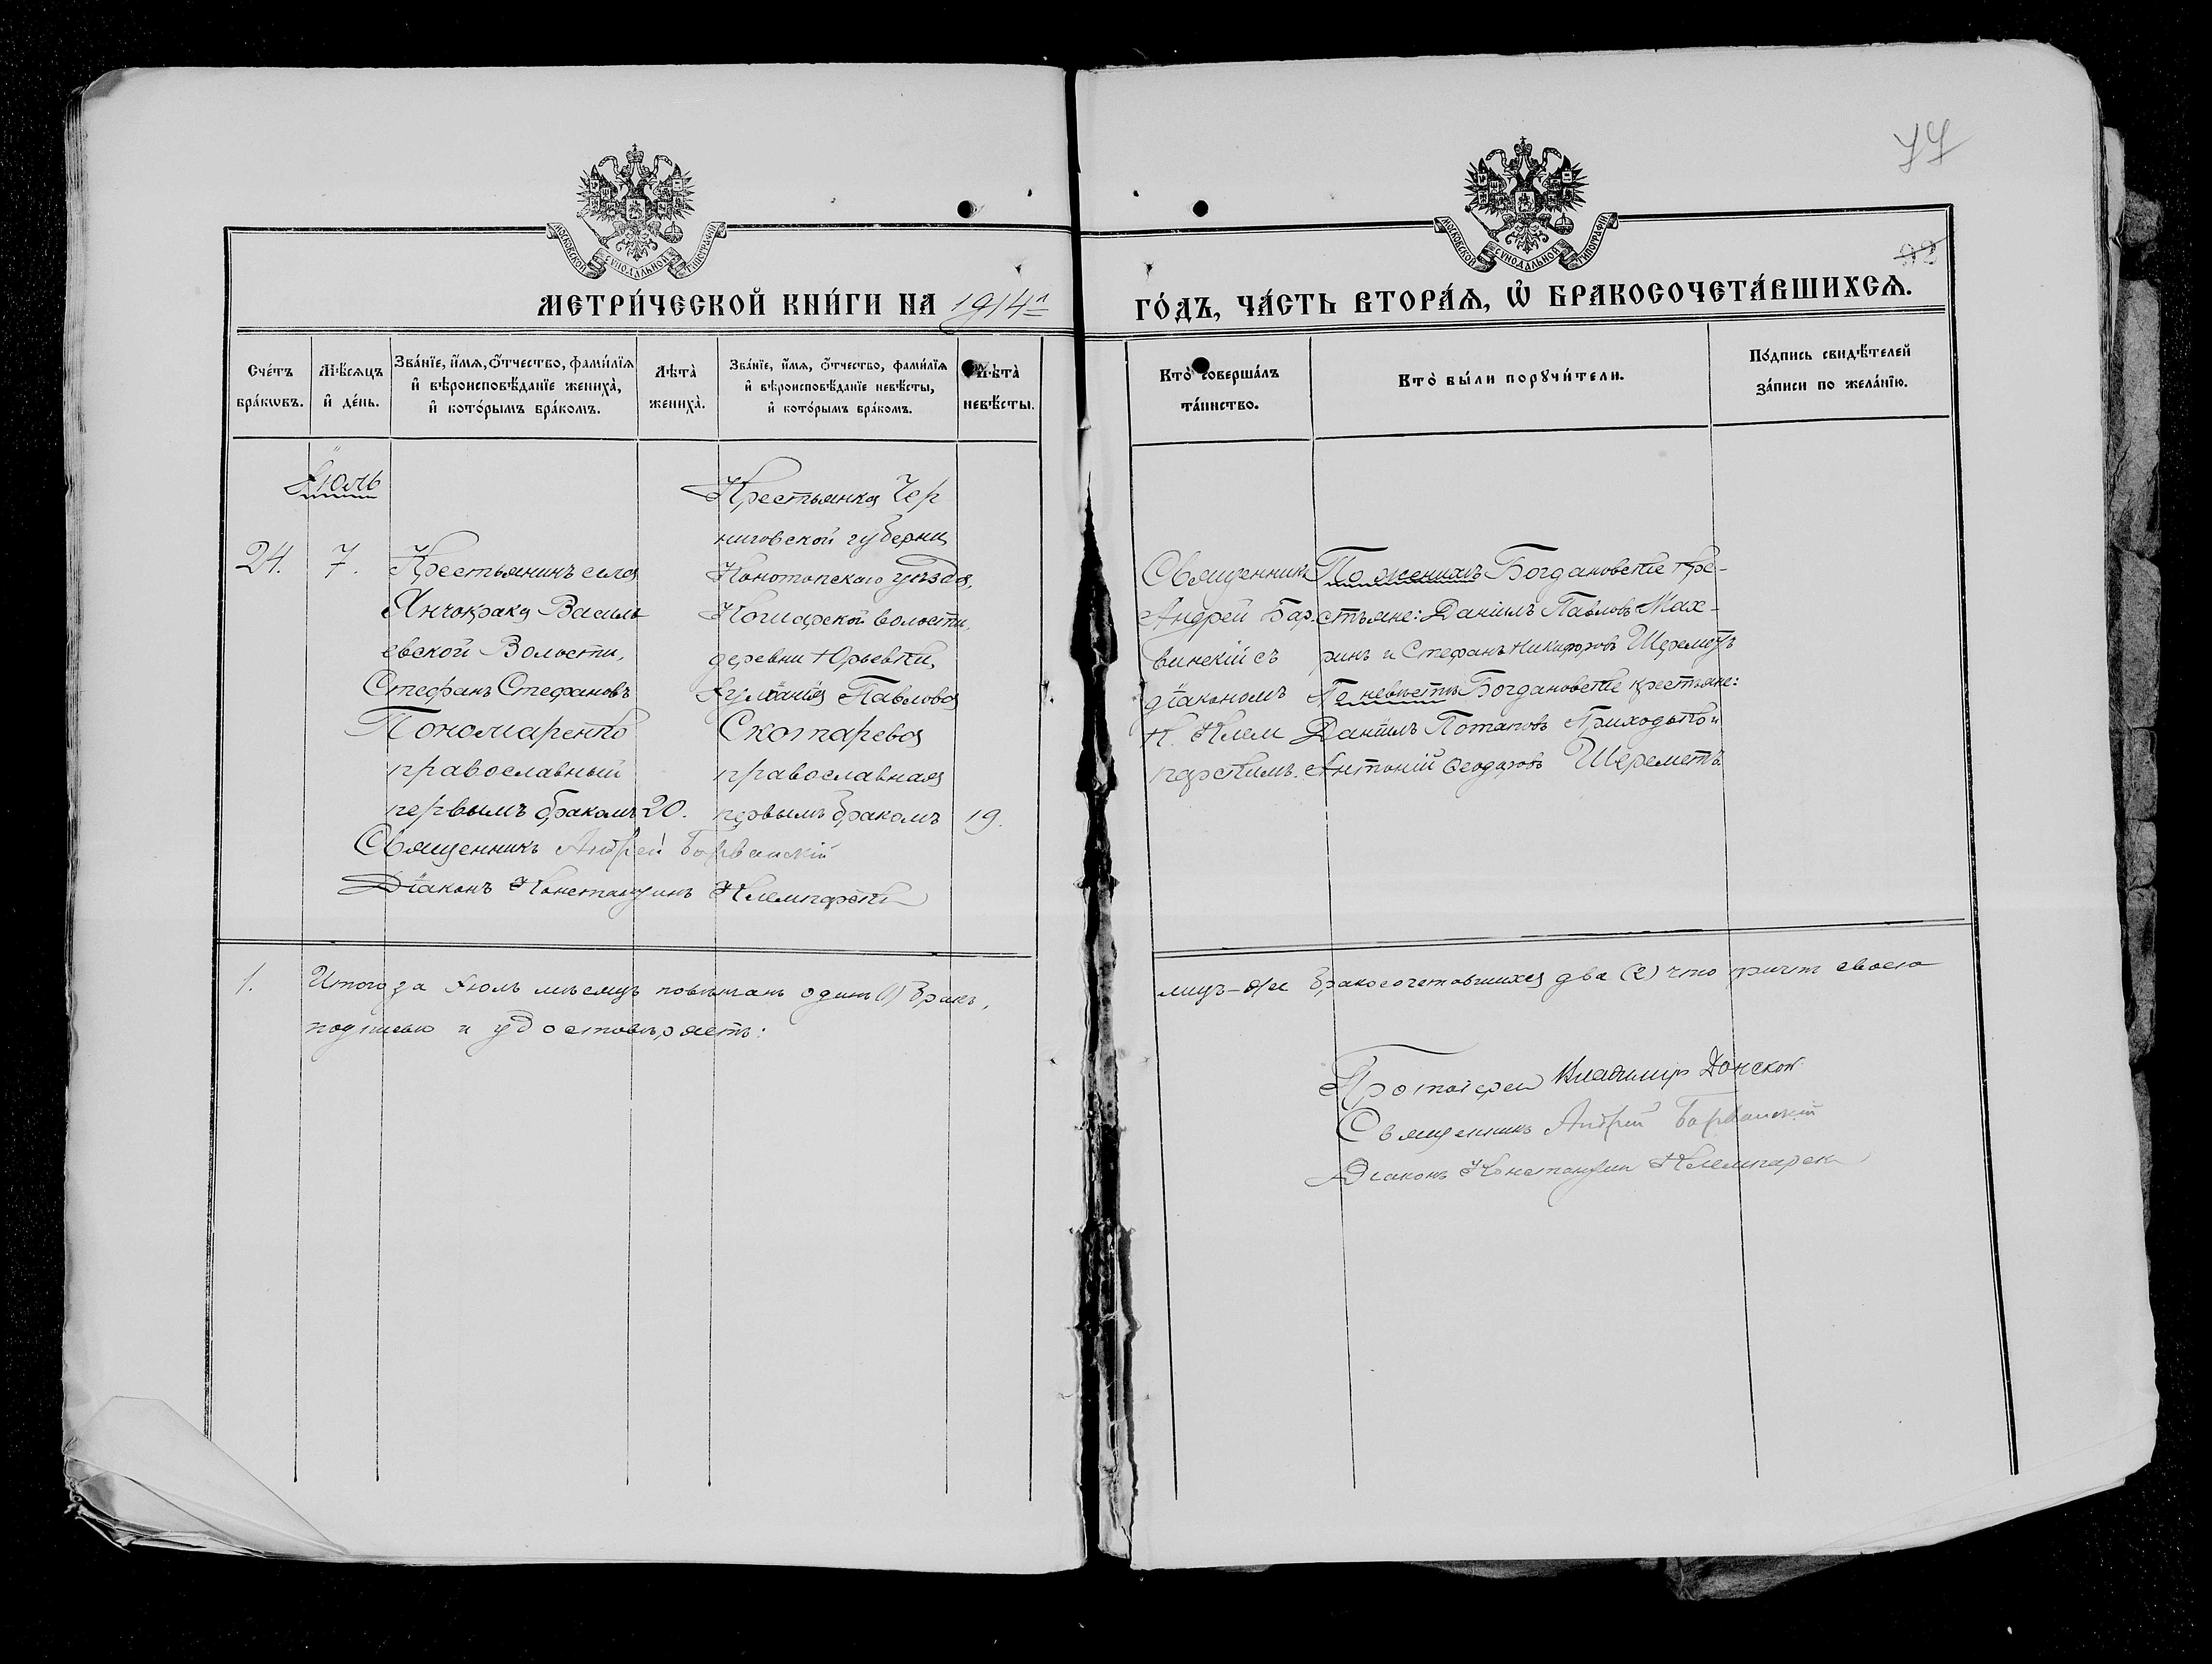 77
92
МОСКОВСКОЙ СѴНОДАЛЬНОЙ ТИПОГРАФІИ
МОСКОВСКОЙ СѴНОДАЛЬНОЙ ТИПОГРАФІИ
МЕТРИ́ЧЕСКОЙ КНИ́ГИ НА 1914
ГО́ДЪ, ЧА́СТЬ ВТОРА́Ѧ, Ѽ БРАКОСОЧЕТА́ВШИХСѦ.
Сче́тъ бра́кѡвъ.
Мѣ́сѧцъ и҆ де́нь.
Зва́нїе, и҆́мѧ, ѻ҆́тчество, фами́лїѧ и҆ вѣроисповѣ́данїе жениха̀, и҆ кото́рымъ бра́комъ.
Лѣта̀ жениха̀.
Зва́нїе, и҆́мѧ, ѻ҆́тчество, фами́лїѧ и҆ вѣроисповѣ́данїе невѣ́сты, и҆ кото́рымъ бра́комъ.
Лѣта̀ невѣ́сты.
Кто̀ соверша́лъ та́инство.
Кто̀ бы́ли порꙋчи́тели.
По́дпись свидѣ́телей за́писи по жела́нїю.
Іюль
24.
7.
Крестьянинъ села
Янчокрака Василь
евской Волости,
Стефанъ Стефановъ
Пономаренко
православный
первымъ бракомъ
20.
Крестьянка Чер
ниговской губерни
Конотопскаго уѣзда,
Кошарской волости,
деревни Юрьевки,
Іуліанія Павлова
Скотарева
православная
первымъ бракомъ
19.
Священникъ
Андрей Бар
винскій съ
діакономъ
К. Клем
парскимъ.
По женихѣ Богдановскіе кре-
стьяне: Даніилъ Павловъ Мах-
ринъ и Стефанъ Никифоровъ Шереметъ
По невѣстѣ Богдановскіе крестьяне:
Даніилъ Потаповъ Приходько и
Антоній Ѳеодоровъ Шереметъ.
Священникъ Андрей Барвинскій
Діаконъ Константинъ Клемпарскій
1.
Итого за Іюль мѣсяцъ повѣнчанъ одинъ (1) бракъ,
лицъ бракосочетавшихся два (2) что причтъ своею
подписью и удостовѣряетъ:
Протоіерей Владиміръ Донской
Священникъ Андрей Барвинскій
Діаконъ Константинъ Клемпарскій